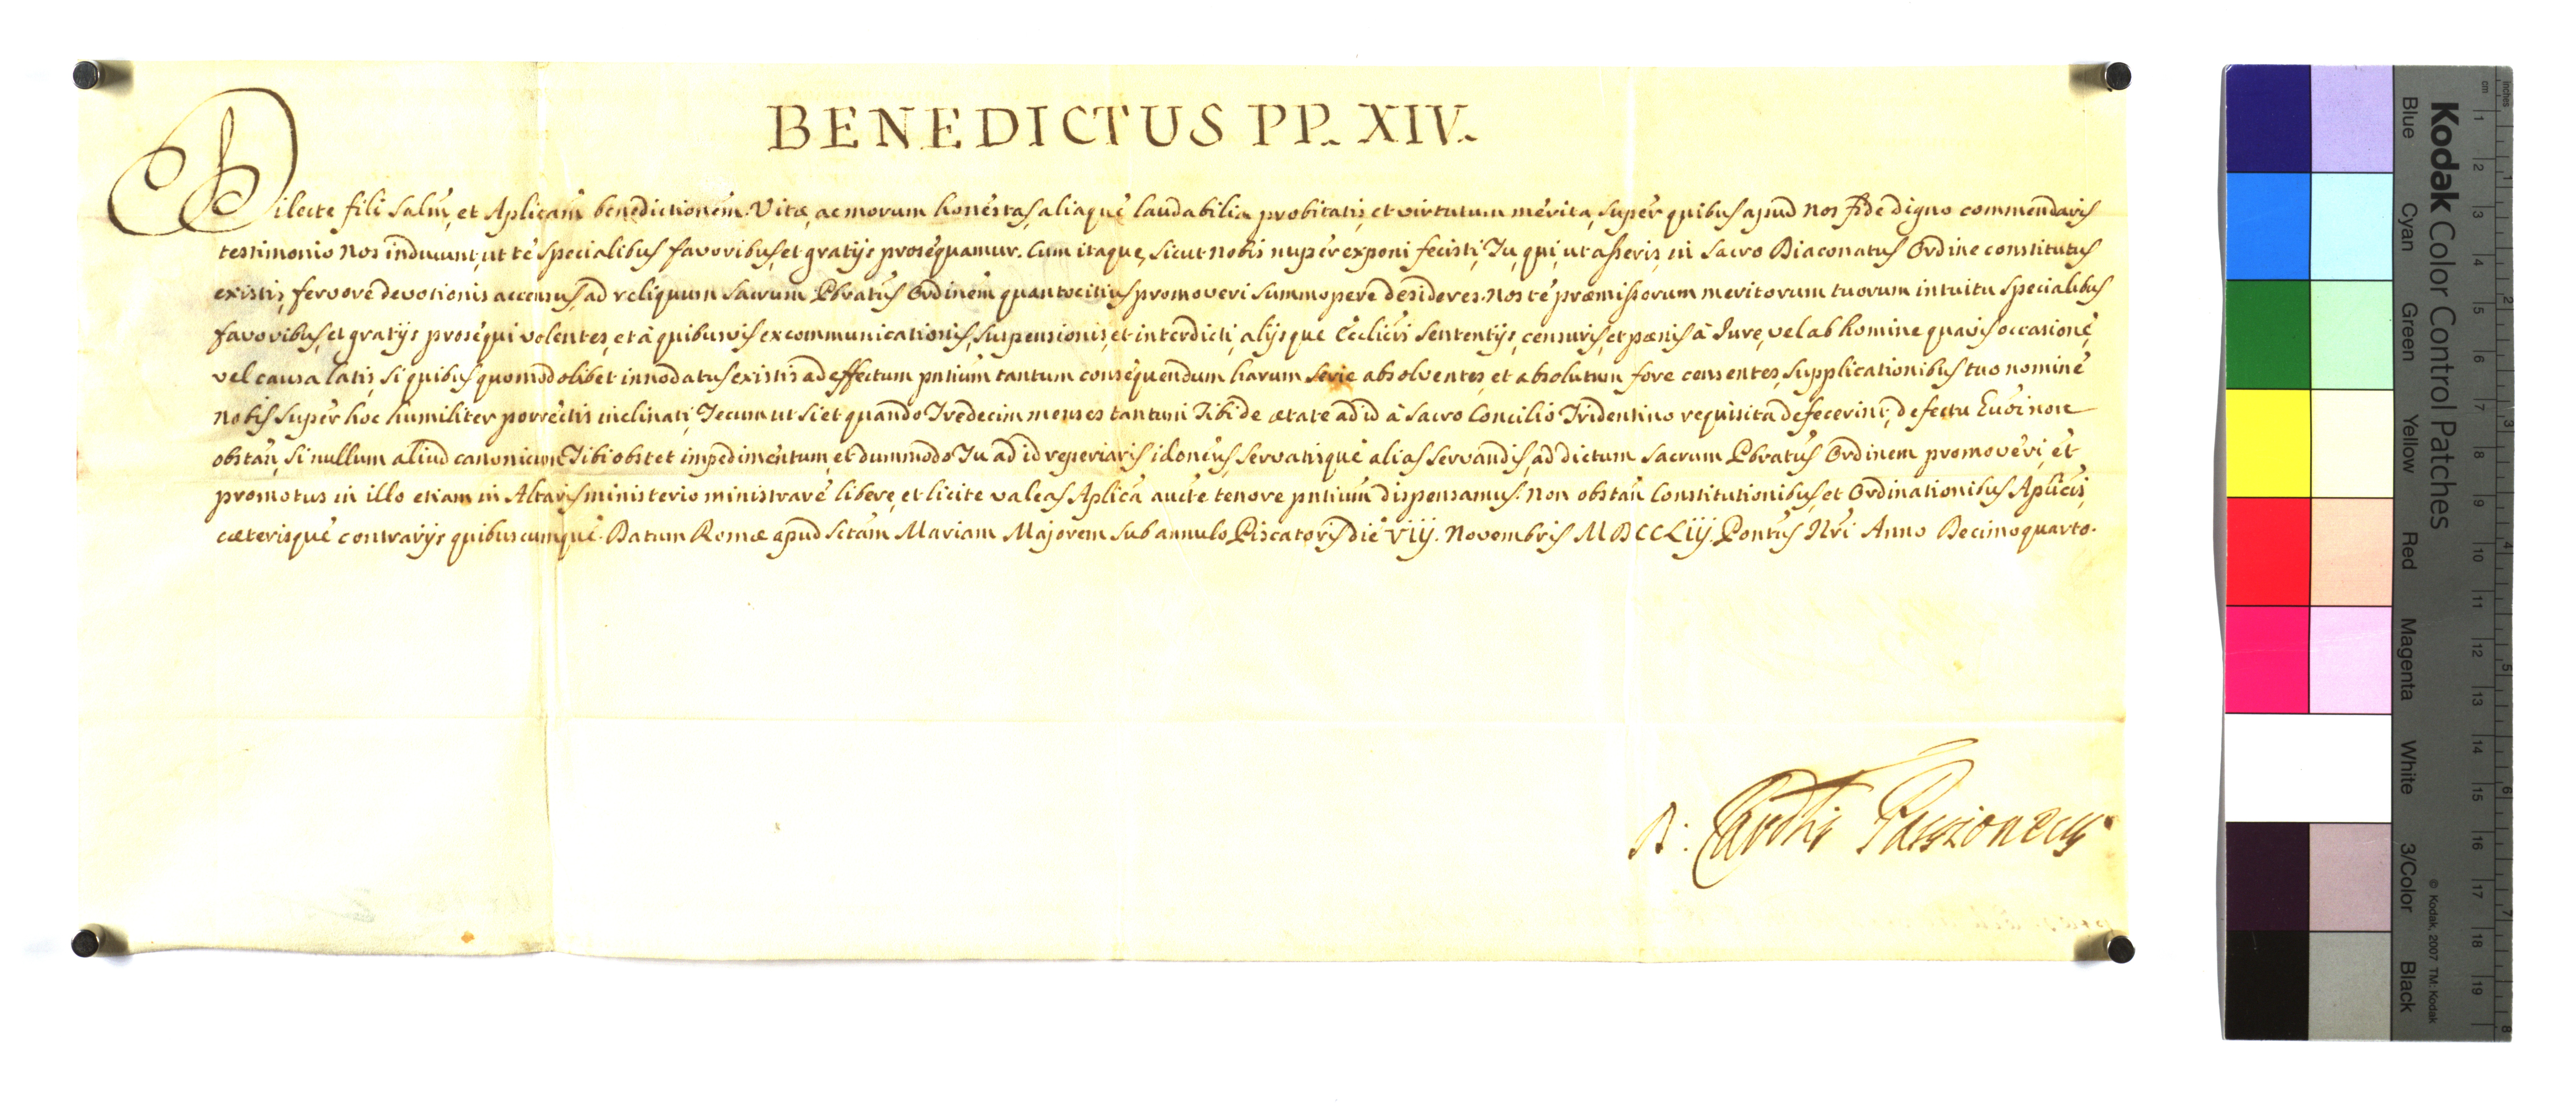 BENEDICTUS PP. XIV.
Dilecte fili Salm̃, et Aplicam̃ benedictionem. Vitæ, ac morum honestas, aliaque laudabilia probitatis, et virtutum merita, super quibus apud Nos fide digno commendaris
testimonio Nos inducunt, ut te specialibus favoribus, et gratijs prosequamur. Cum itaque, sicut nobis nuper exponi fecisti, Tu, qui, ut asseris, in Sacro Diaconatus Ordine constitutus
existis, fervore devotionis accensus, ad reliquum Sacrum Pbratus Ordinem quantocitius promoveri summopere desideres. Nos te præmissorum meritorum tuorum intuitu specialibus
favoribus, et gratijs prosequi volentes, et à quibusvis excommunicationis, suspensionis, et interdicti, alijsque Ecclicis sententijs, censuris, et pœnis à Jure, vel ab homine quavis occasione,
vel causa latis, si quibus quomodolibet innodatus existis ad effectum pntium tantum consequendum harum serie absolventes, et absolutum fore censentes, supplicationibus tuo nomine
Nobis super hoc humiliter porrectis inclinati, Tecum ut si et quando Tredecim menses tantum Tibi de ætate ad id à Sacro Concilio Tridentino requisita defecerint, defectu huõi non
obstan̄, si nullum aliud canonicum Tibi obstet impedimentum, et dummodo Tu ad id reperiaris idoneus, servatisque alias servandis, ad dictum Sacrum Pbratus Ordinem promoveri, et
promotus in illo etiam in Altaris ministerio ministrare libere, et licite valeas Aplica aucte tenore pntium dispensamus. Non obstan̄ Constitutionibus, et Ordinationibus Aplicis,
cæterisque contrarijs quibuscumque. Datum Romæ apud Sctam Mariam Majorem sub annulo Piscatoris die VIIJ. Novembris MDCCLIIJ. Pontus Nri Anno Decimoquarto.
D: Cardlis Passioneus
Kodak Color Control Patches
© Kodak, 2007 TM: Kodak
Blue Cyan Green Yellow Red Magenta White 3/Color Black
cm 1 2 3 4 5 6 7 8 9 10 11 12 13 14 15 16 17 18 19
Inches 1 2 3 4 5 6 7 8